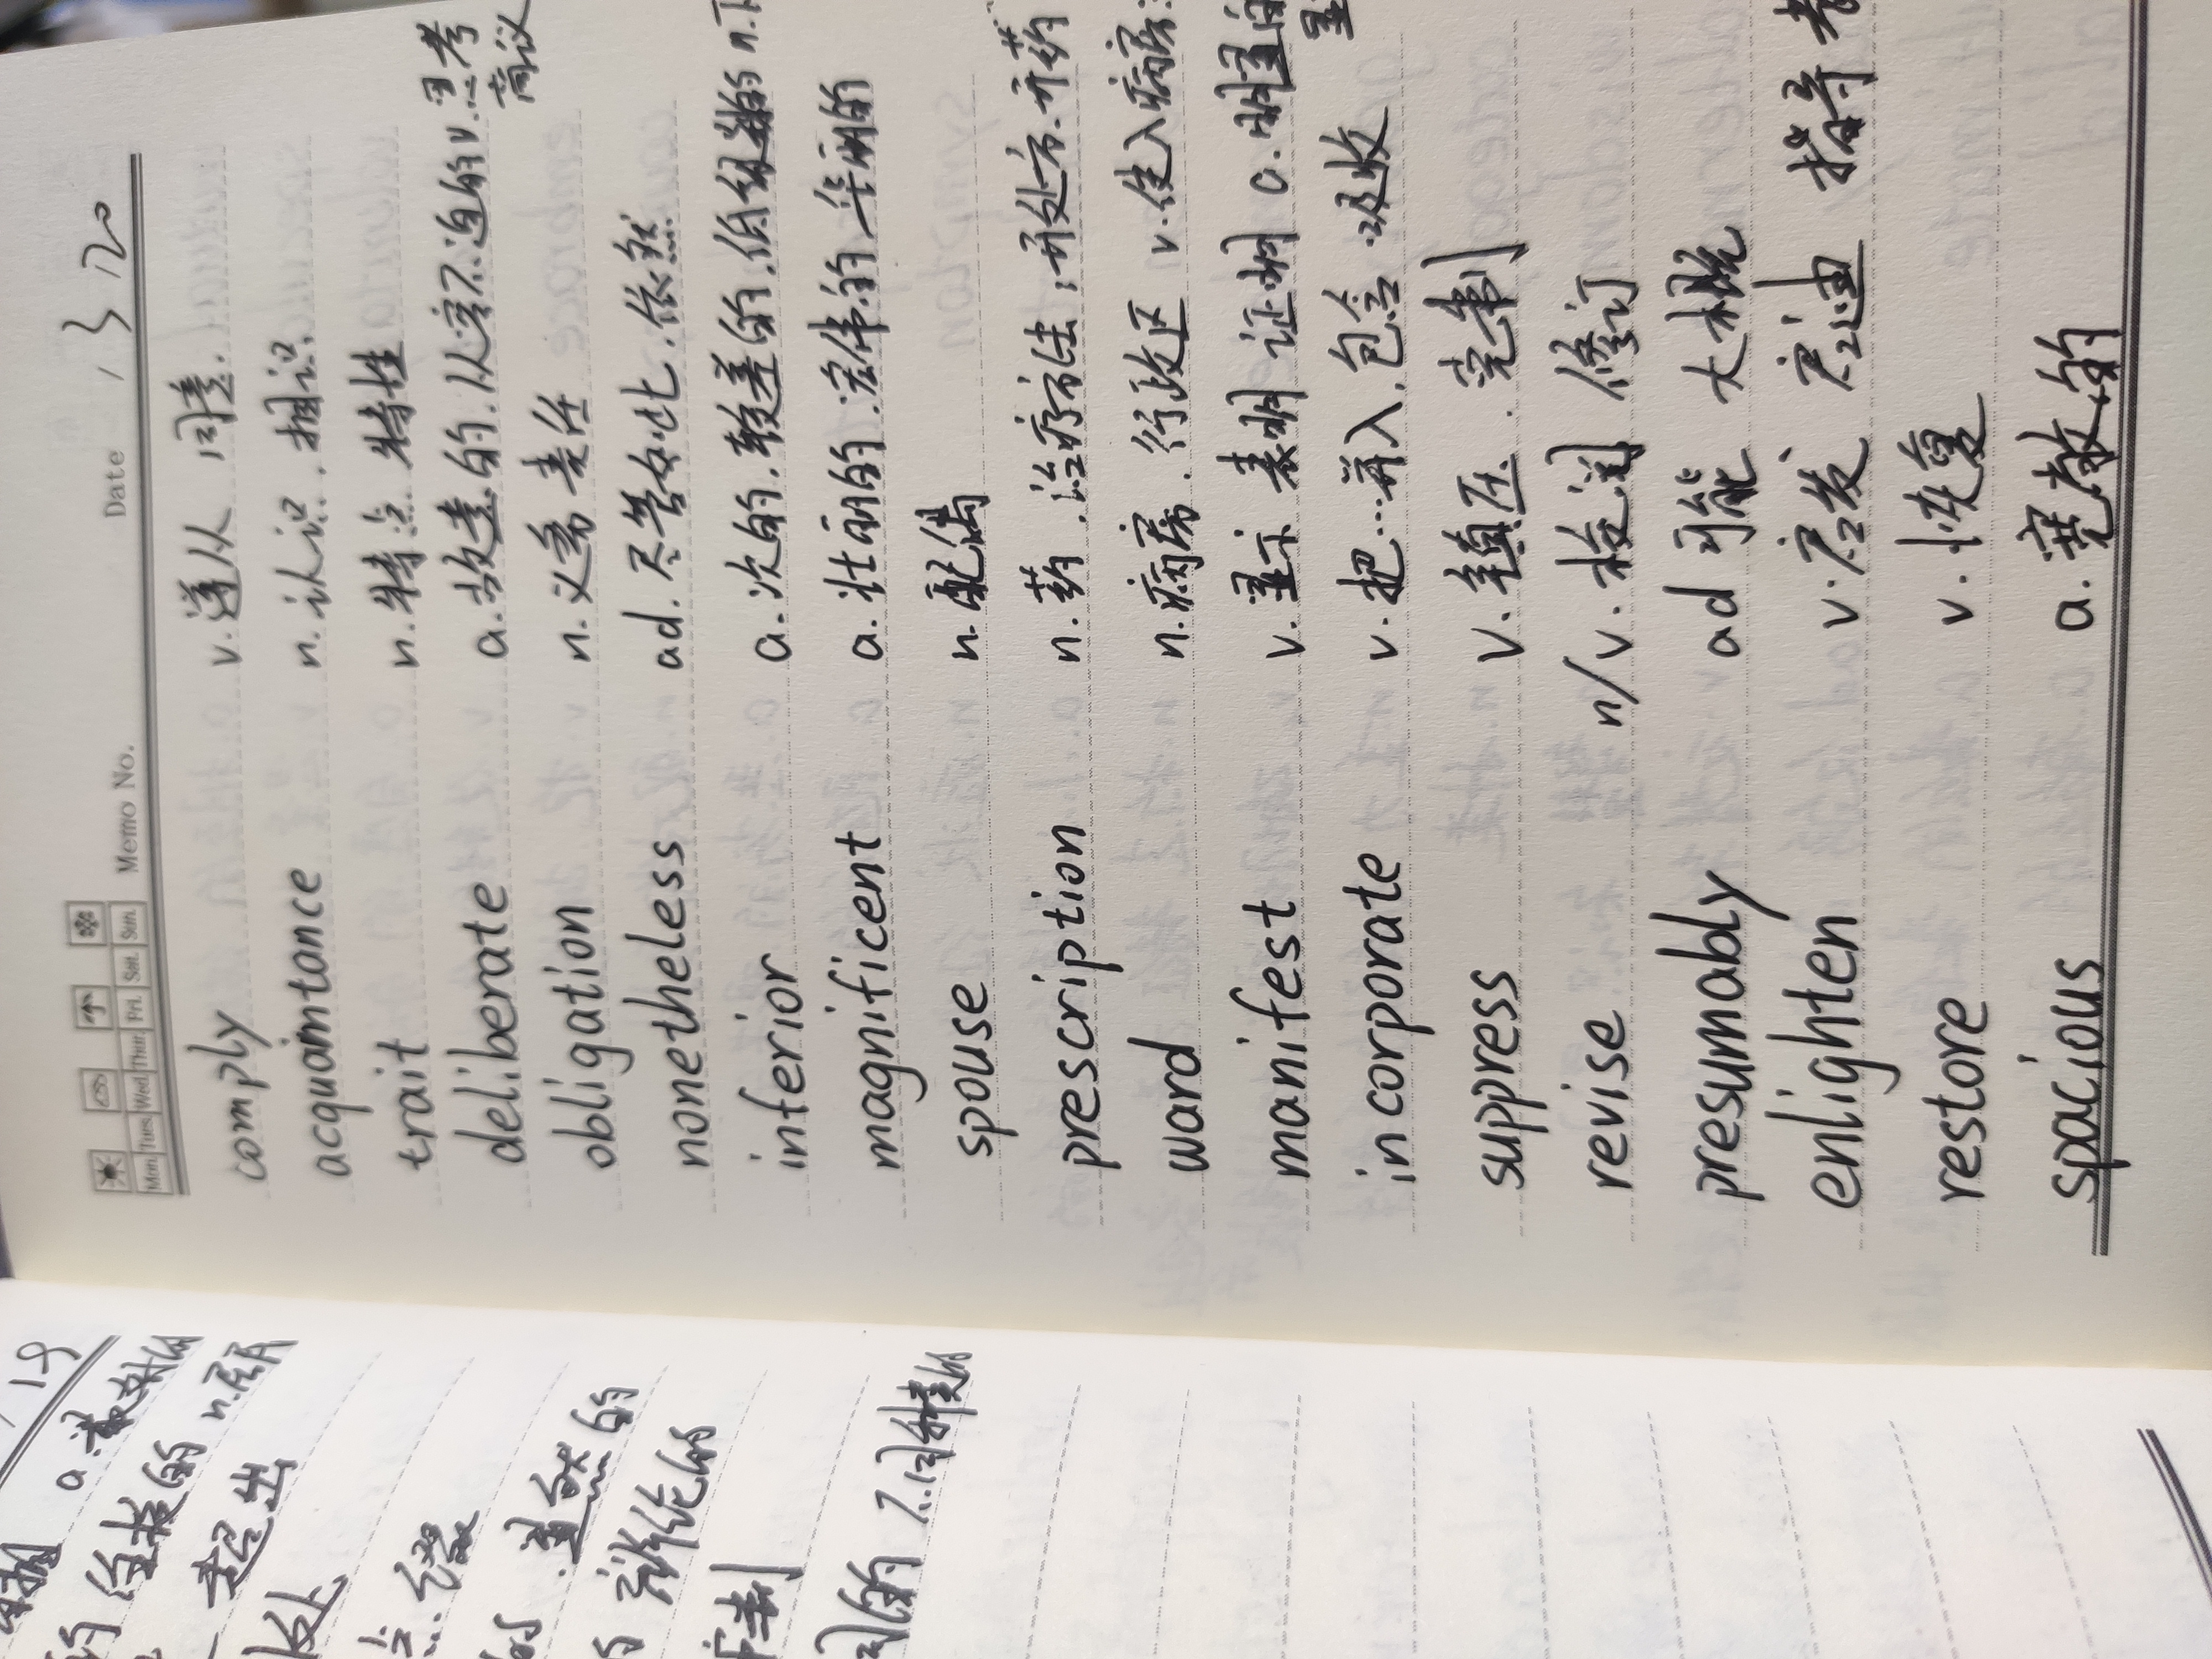 Memo No. Date / 3 / 20
Mon. Tues. Wed. Thur. Fri. Sat. Sun.
comply v. 遵从 同意.
acquaintance n. 认识. 相识
trait n. 特点 特性
deliberate a. 故意的. 从容不迫的 v. 思考
商议
obligation n. 义务 责任
nonetheless ad. 尽管如此. 依然
inferior a. 次的. 较差的. 低级的 n.
magnificent a. 壮丽的. 宏伟的. 华丽的
spouse n. 配偶
prescription n. 药. 治疗方法; 开处方. 开药
ward n. 病房. 行政区 v. 住入病房
manifest v. 显示 表明 证明 a. 明显的
显
incorporate v. 把…并入. 包含. 吸收
suppress v. 镇压. 完制
revise n/v. 校阅 修订
presumably ad 可能 大概
enlighten v. 启发 启迪 指导
restore v. 恢复
spacious a. 宽敞的
/ 19
a.
的 连接的 n.
提出
处
点. 缀
. 道然的
辩论的
制
的 不同种类的